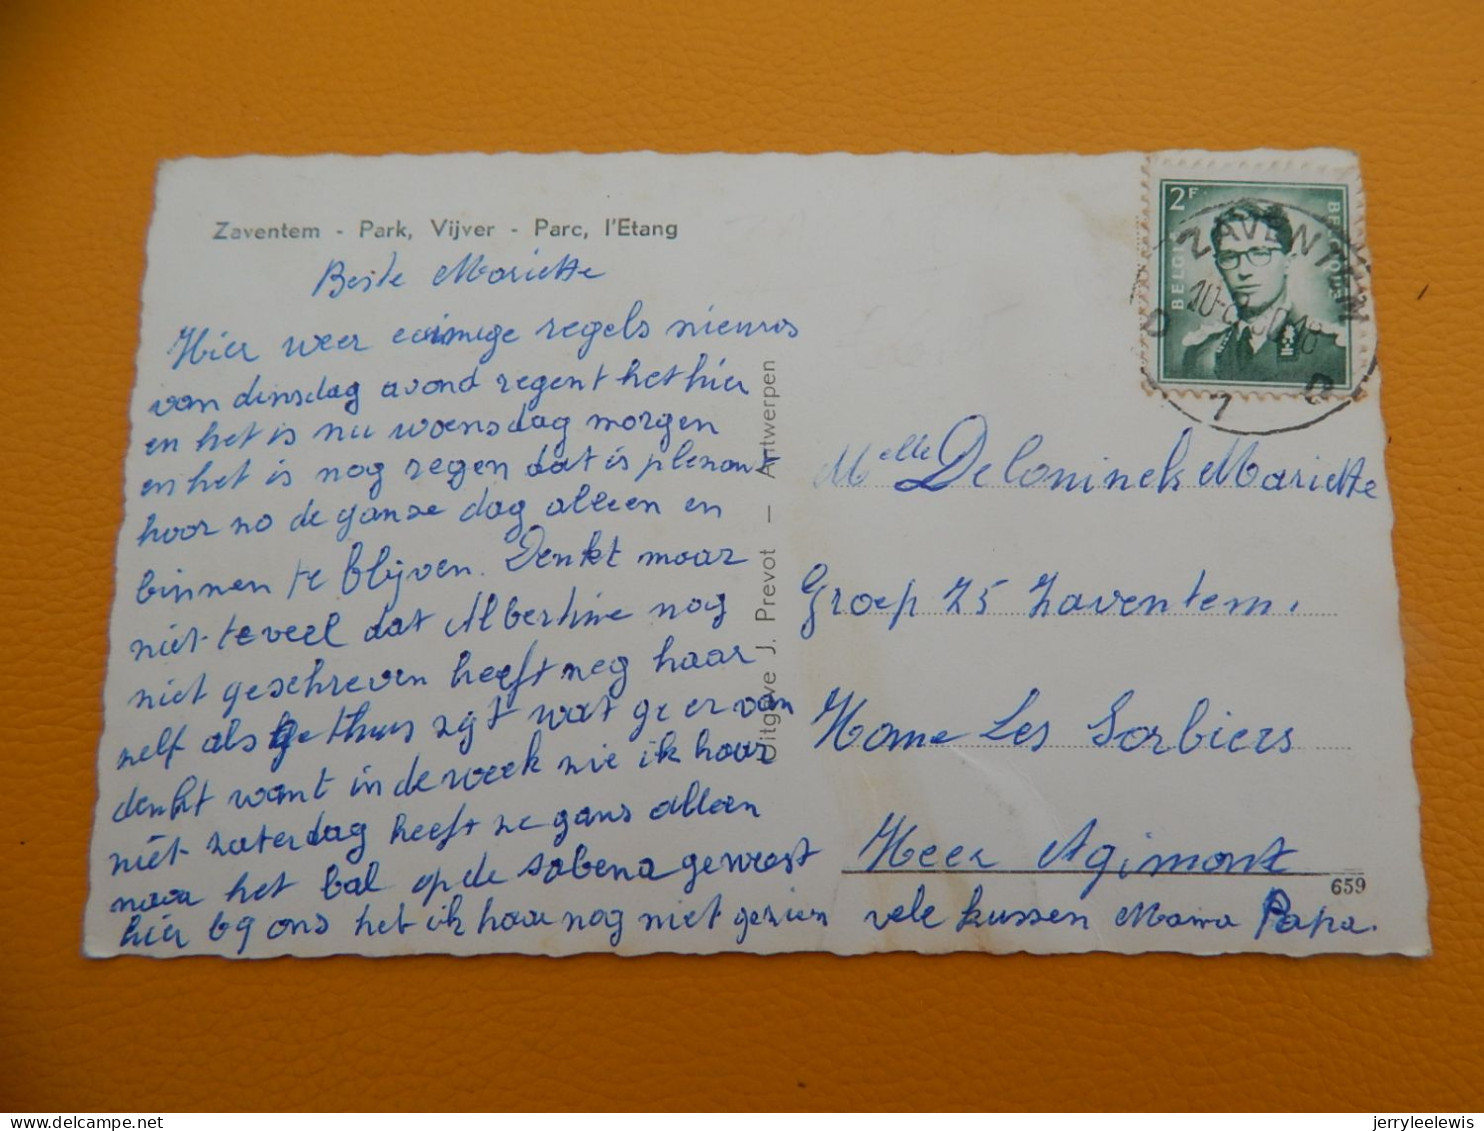 Zaventem - Park, Vijver - Parc, l'Etang
Beste Mariette
Hier weer einige regels nieuws
van dinsdag avond regent het hier
en het is nu woensdag morgen
en het is nog regen dat is plezan
hoor zo de ganse dag alleen en
binnen te blijven. Denkt maar
niet te veel dat Albertine nog
niet geschreven heeft zeg haar
zelf als ge thuis zijt wat ge er van
denkt want in de week zie ik haar
niet zaterdag heeft ze gans alleen
naar het bal op de Sabena geweest
hier bij ons heb ik haar nog niet gezien vele kussen Mama Papa.
Uitgave J. Prevot — Antwerpen
2F
BELGIE
BELGIQUE
ZAVENTEM
Melle De Coninck Mariette
Groep 25 Zaventem.
Home Les Sorbiers
Heer Agimont
659
jerryleelewis